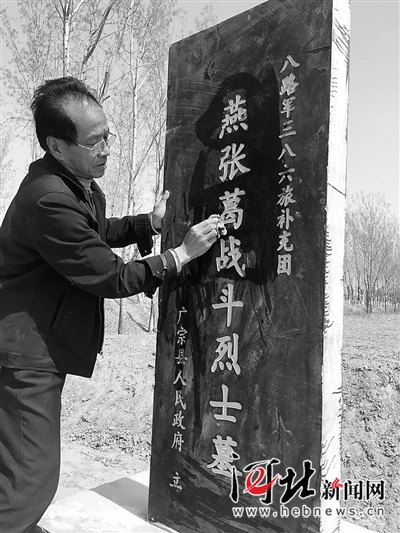 八路军三八六旅补充团
燕张葛战斗烈士墓
广宗县人民政府 立
河北新闻网
www.hebnews.cn